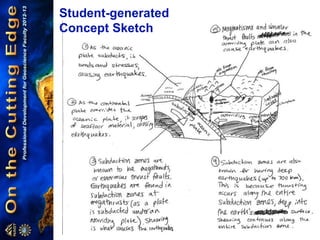 On the Cutting Edge
Professional Development for Geoscience Faculty 2012-13
Student-generated
Concept Sketch
① As the oceanic
plate subducts, it
bends and stresses,
causing earthquakes.
② As the continental
plate overrides the
oceanic plate, it scrapes
off seafloor material, causing
earthquakes.
③ Subduction zones are
known to be megathrusts,
or enormous thrust faults.
Earthquakes are found in
Subduction zones at
megathrusts (as a plate
is subducted under an
overriding plate). Shearing
is what causes the earthquakes.
④ Subduction zones are also
known for having deep
earthquakes (up to 700 km).
This is because thrusting
occurs along the entire
Subduction zones, deep into
the earth's surface.
Shearing continues along the
entire subduction zone.
⑤ Magmatisms and smaller
thrust faults in the
overriding plate can also
cause earthquakes.